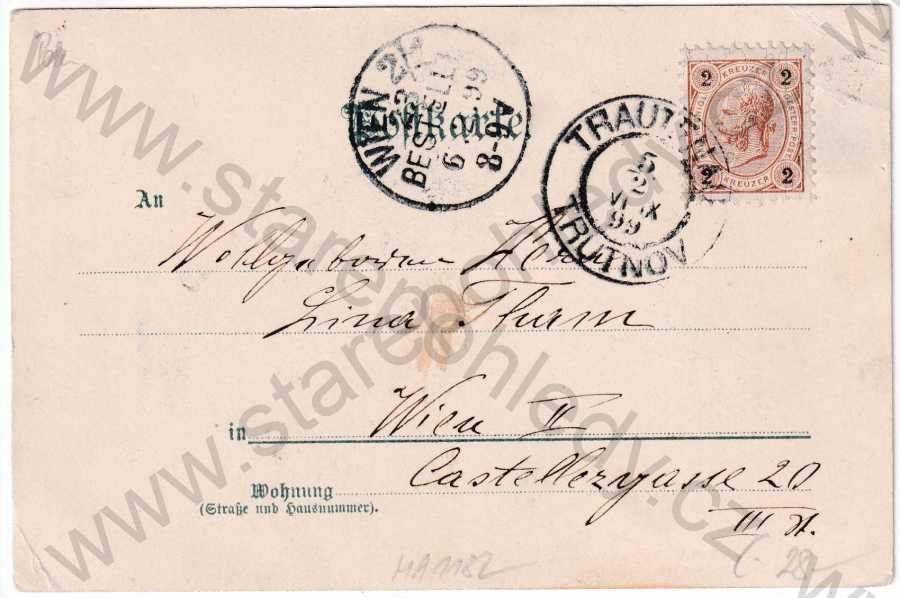 WIEN 2/3
BESTELLT
6. 2. 99
8-9V
Postkarte.
TRAUTENAU
5
2
VI IX
99
TRUTNOV
2 KREUZER 2
2 KREUZER 2
An
Wohlgeboren Herrn
Lina Thurm
in Wien II
Castellezgasse 20
Wohnung
(Straße und Hausnummer).
III St.
HA1182
28
www.starepohledy.cz